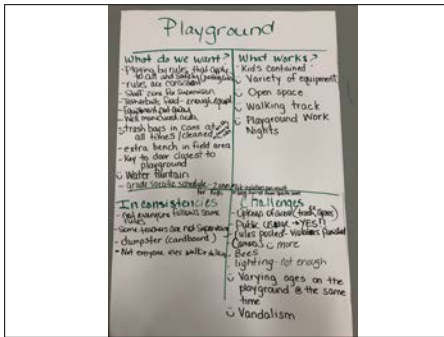 Playground
What do we want?
- Playing by rules that apply
to all and
- rules are consistent
- Staff care for supervision
- enough equip
- Equipment put away
- Well manicured
- trash bags in cans at
all times/cleaned
- extra bench in field area
- Key to door closest to
playground
Water fountain
- schedule - Zones
What works?
- Kids contained
Variety of equipment
- Open space
- Walking track
- Playground Work
Nights
Inconsistencies
- not everyone follows same
rules
- Some teachers are not supervising
- dumpster (cardboard)
- Not everyone
Challenges
- Upkeep of area (trash,
Public usage → YES!!
(rules posted -
Camera) more
- Bees
lighting - not enough
- Varying ages on the
playground @ the same
time
Vandalism